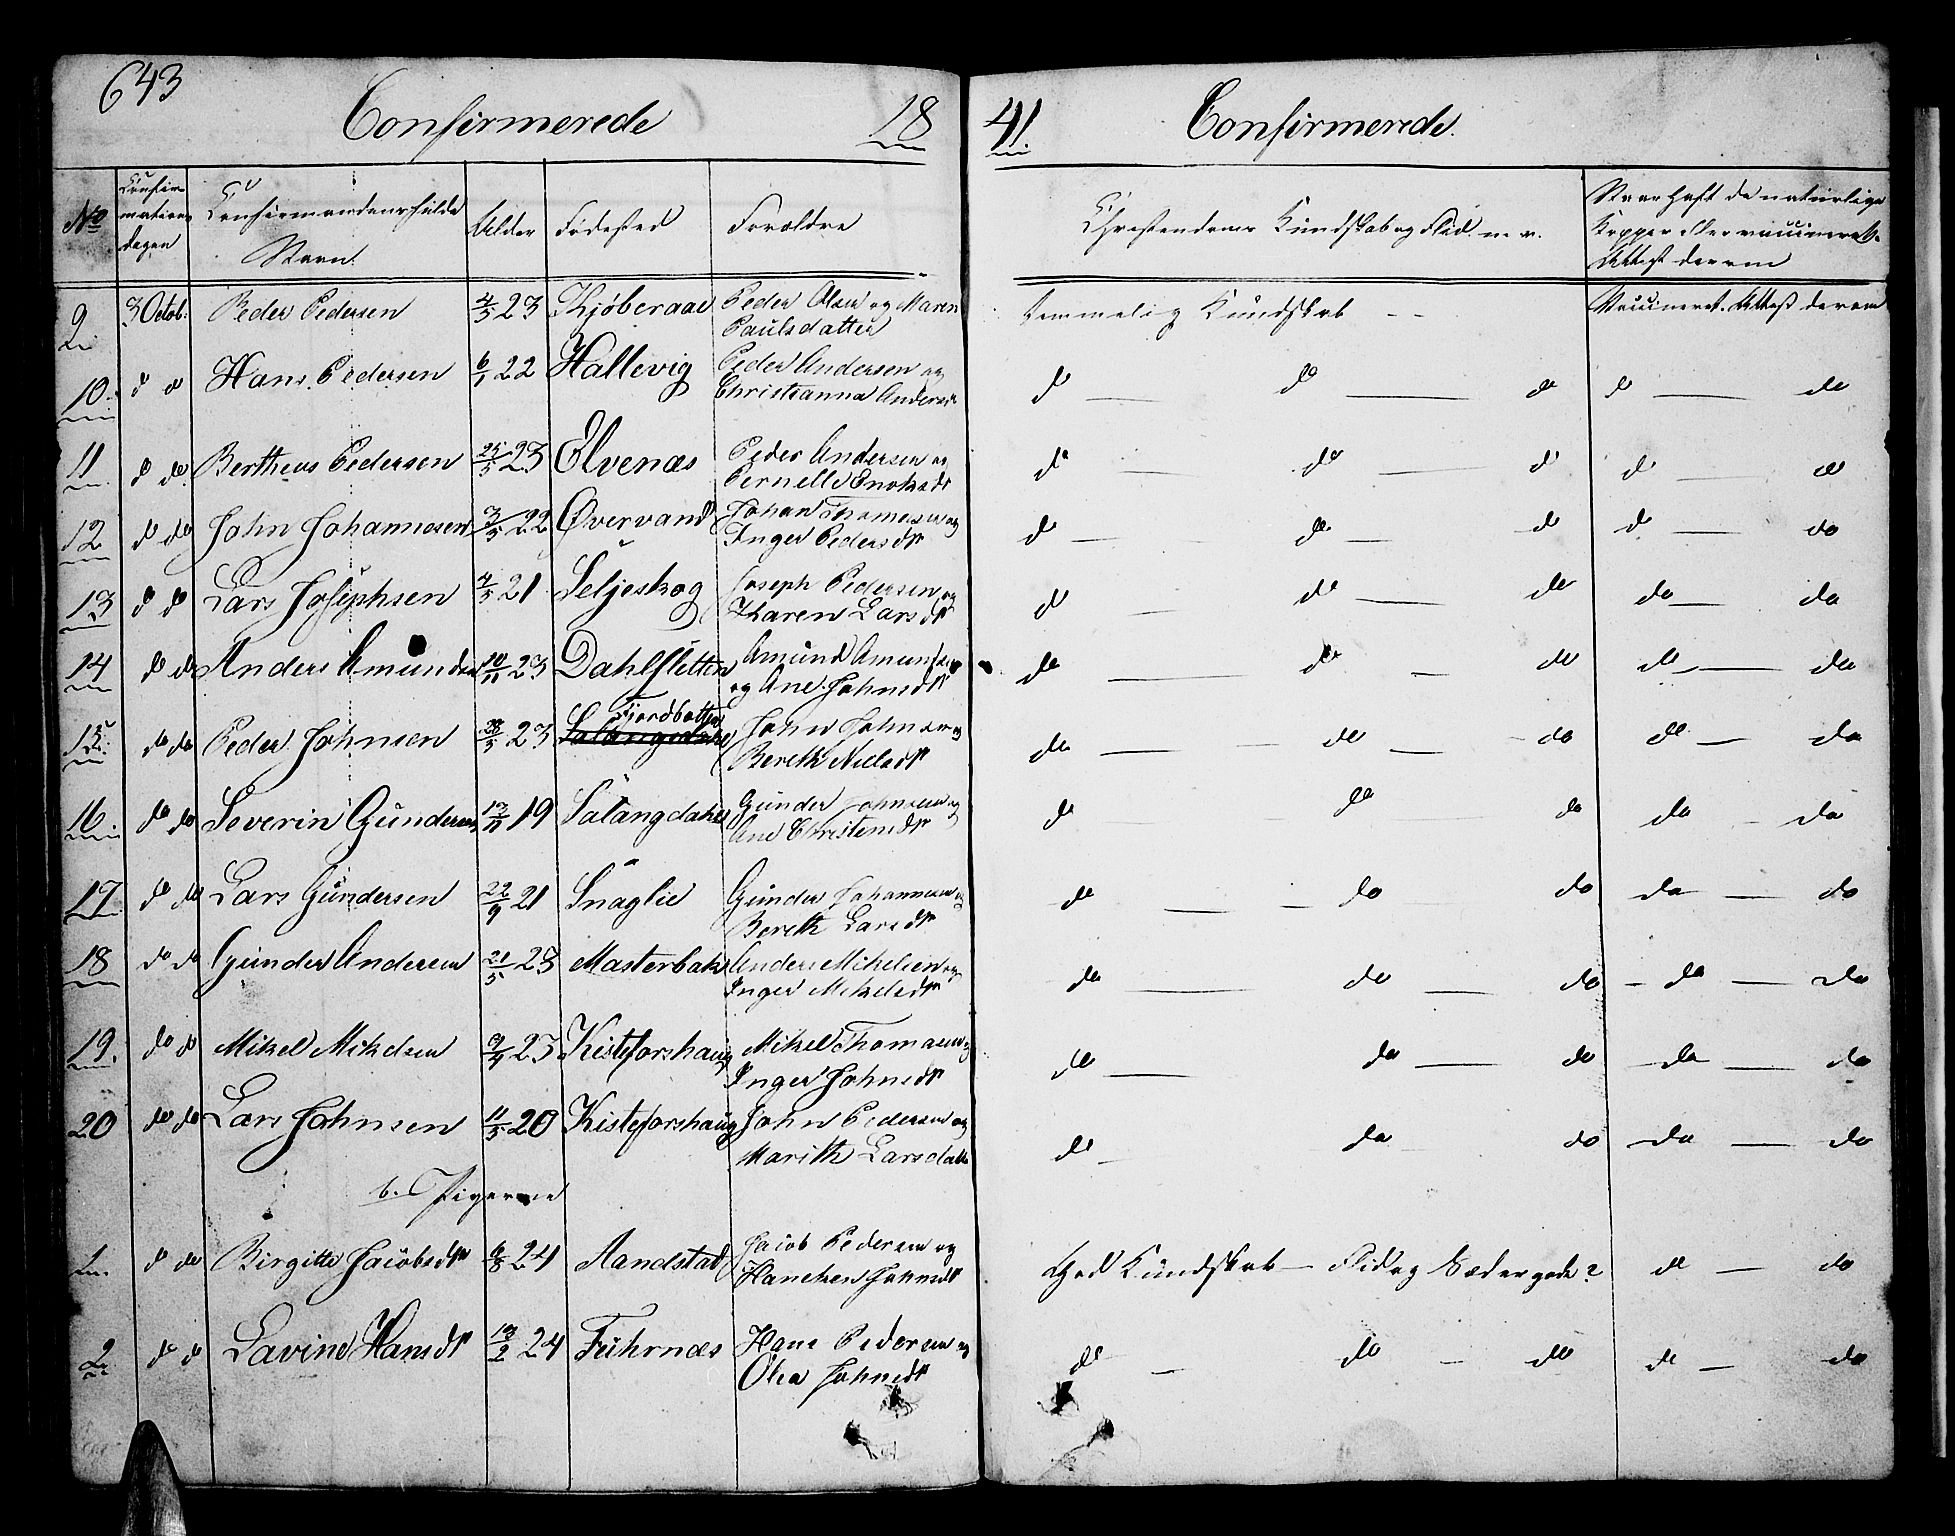 643
Confirmerede 18 41. Confirmerede.
No Confirmations Dagen Confirmandens fulde Navn Alder Fødested Forældre Christendoms Kundskab og Flid m. v. Naar haft de naturlige Kopper eller vaccineret. Attest derom
9 3 Octob: Peder Pedersen 4/5 23 Kjøberaae Peder Olsen og Maren Temmelig Kundskab - - Vaccineret. Attest derom
Paulsdatter
10. do do Hans Pedersen 6/1 22 Hallevig Peder Andersen og do — do — do do — do
Christianna Andersdr
11 do do Bertheus Pedersen 25/5 23 Elvenæs Peder Andersen og do — do — do do — do
Pernelle Enoksdr
12 do do John Johannesen 3/5 22 Øvervand Johan Thomesen og do — do — do do — do
Inger Pedersdr
13 do do Lars Josephsen 4/5 21 Seljeskog Joseph Pedersen og do — do — do do — do
Karen Larsdr
14 do do Anders Amundsen 10/11 23 Dahlsletten Amund Amundsen do — do — do do — do
og Ane Johnsdr
Fjordbotten
15. do do Peder Johnsen 28/5 23 Salangsdalen John Johnsen og do — do — do do — do
Bereth Nielsdr
16. do do Severin Gundersen 13/11 19 Salangdalen Gunder Johnsen og do do do do - do
Ane Christensdr
17 do do Lars Gundersen 22/9 21 Snaglie Gunder Johannesen og do — do do do — do
Bereth Larsdr
18 do do Gunder Andersen 21/5 23 Masterbak Anders Mikelsen og do — do — do - do — do
Inger Mikelsdr
19. do do Mikel Mikelsen 9/4 23 Kisteforshaug Mikel Thomasen og do — do — do do — do
Inger Johnsdr
20 do do Lars Johnsen 11/5 20 Kisteforshaug John Pedersen og do - do do do — do
Marith Larsdatter
b. Pigerne
1. do do Birgitte Jacobsdr 6/8 24 Aandstad Jacob Pedersen og God Kundskab — Flid og Sæder gode do — do
Hanchen Johnsdr
2. do do Lavine Hansdr 13/2 24 Fuhrnæs Hans Pedersen og do — do - do do — do
Olea Johnsdr